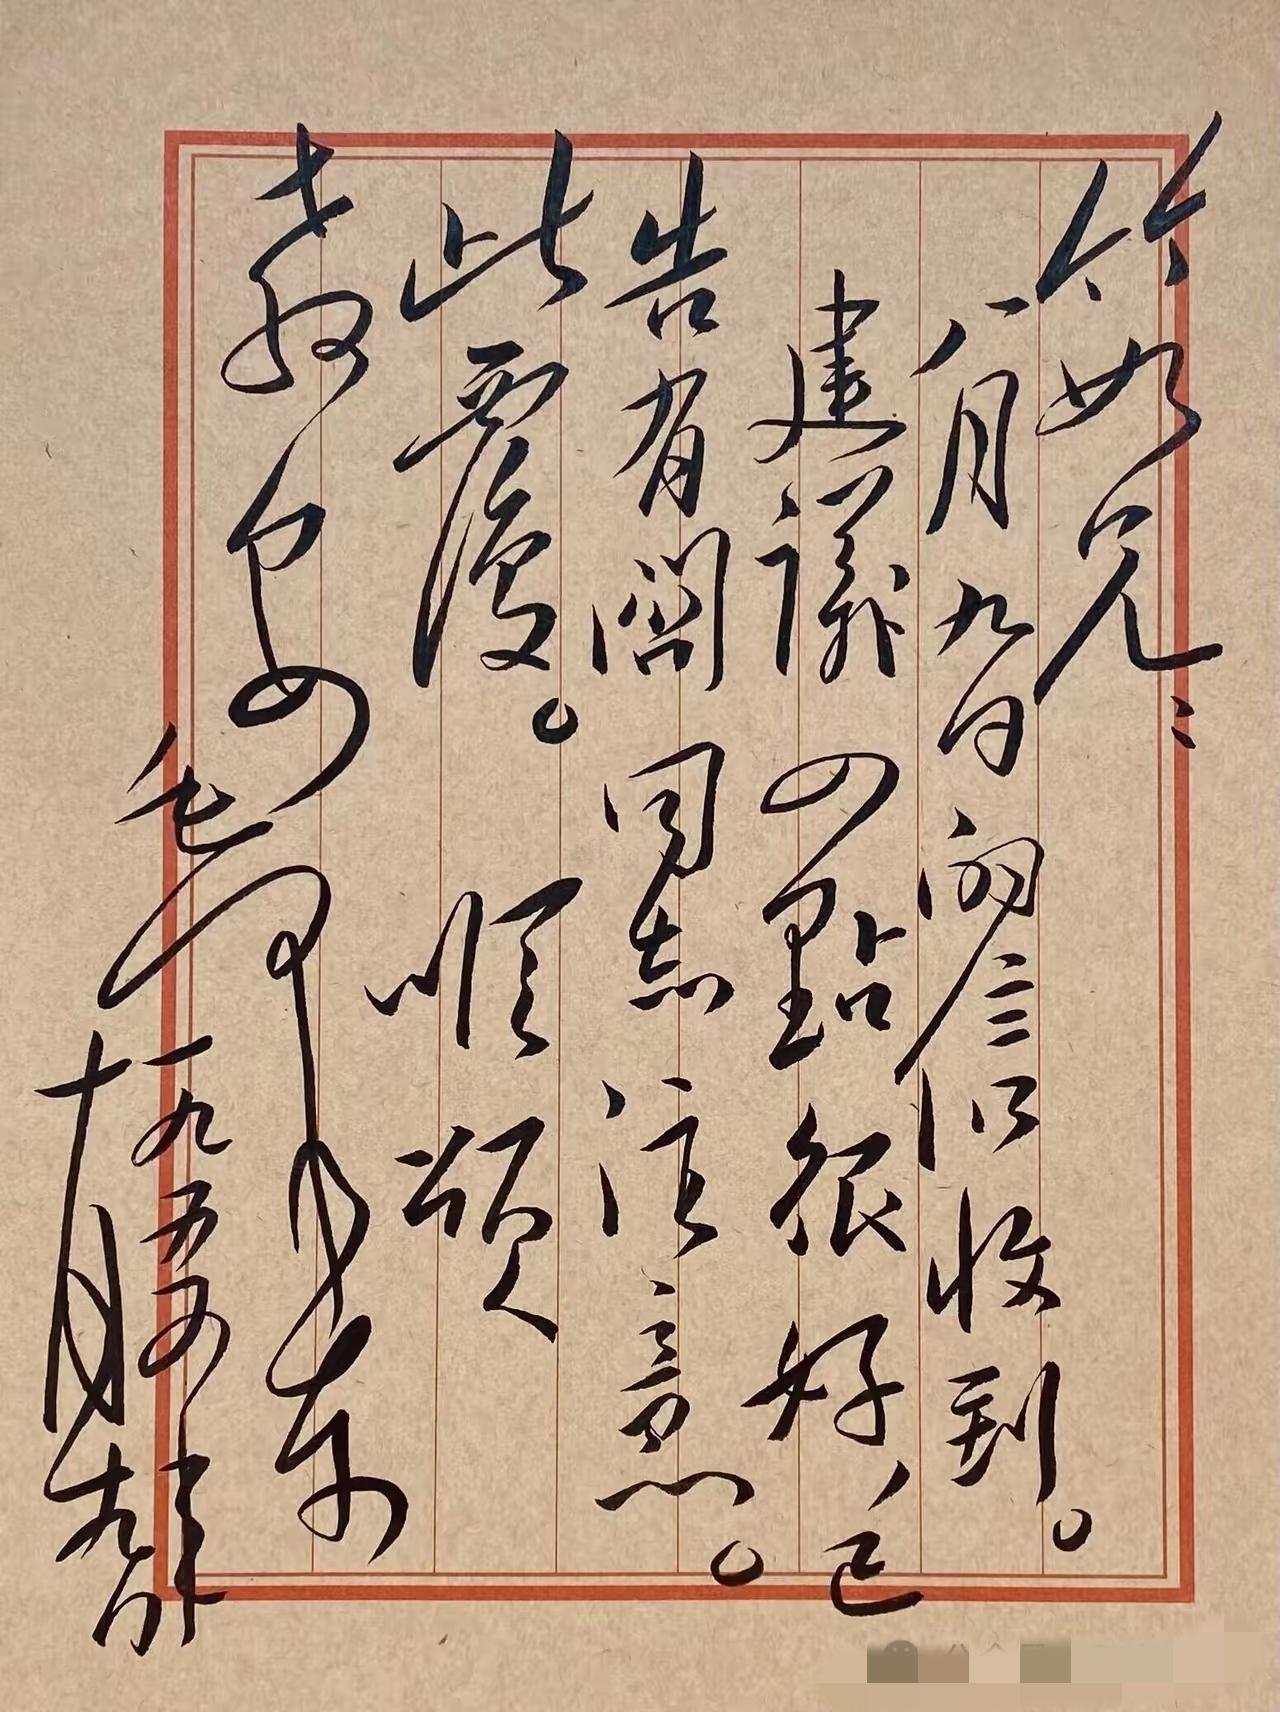 竹如兄：
八月九日的信收到。
建議四點很好、已
告有關同志注意。
此覆。 順頌
教安
毛澤東
一九五四年
十月九日